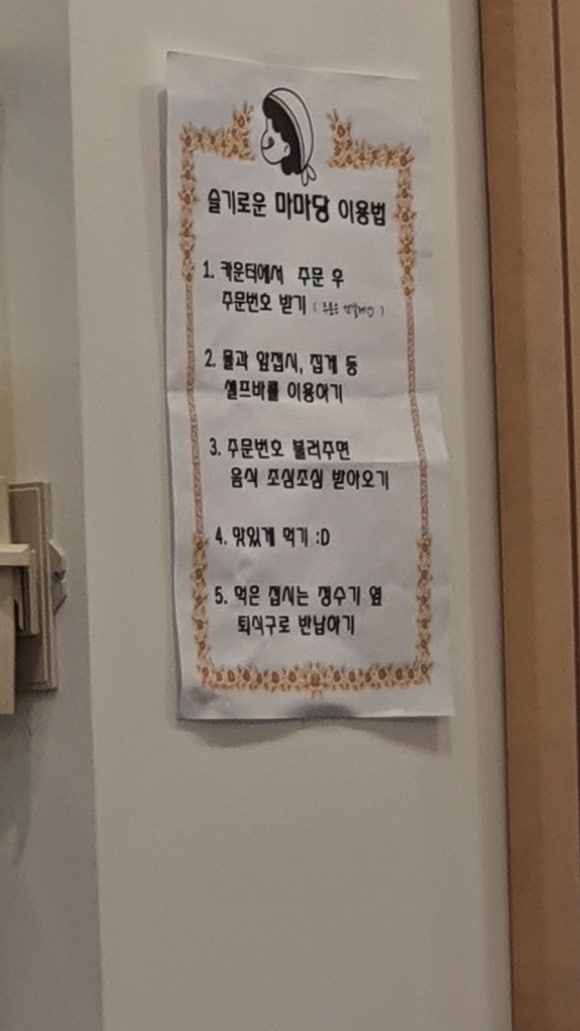 슬기로운 마마당 이용법
1. 카운터에서 주문 후
주문번호 받기
2. 물과 앞접시, 집게 등
셀프바를 이용하기
3. 주문번호 불러주면
음식 조심조심 받아오기
4. 맛있게 먹기 :D
5. 먹은 접시는 정수기 옆
퇴식구로 반납하기